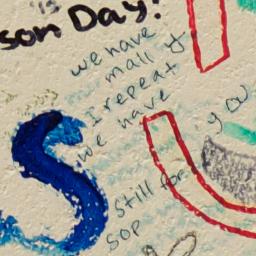 'is
son Day!
we have
mall y
I repeat
we have
you
S
still for
sop